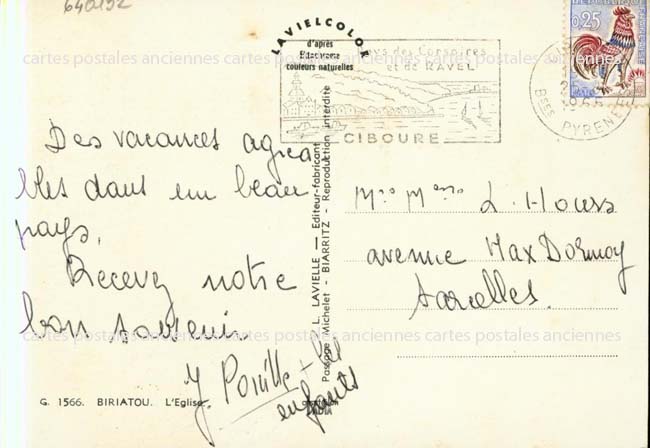 640192
LAVIELCOLOR
d'après
Ektachrome
couleurs naturelles
Pays des Corsaires
et de RAVEL
CIBOURE
0,25
Bses PYRENEES
Des vacances agréa
bles dans un beau
pays,
Recevez notre
bon souvenir.
J. + les
enfants
L. LAVIELLE — Editeur-fabricant
Passage Michelet - BIARRITZ - Reproduction interdite
Mr Mme L. Hours
avenue Max Dormoy
Sarcelles.
G. 1566. BIRIATOU. L'Eglise.
cartes postales anciennes cartes postales anciennes cartes postales anciennes
cartes postales anciennes cartes postales anciennes cartes postales anciennes